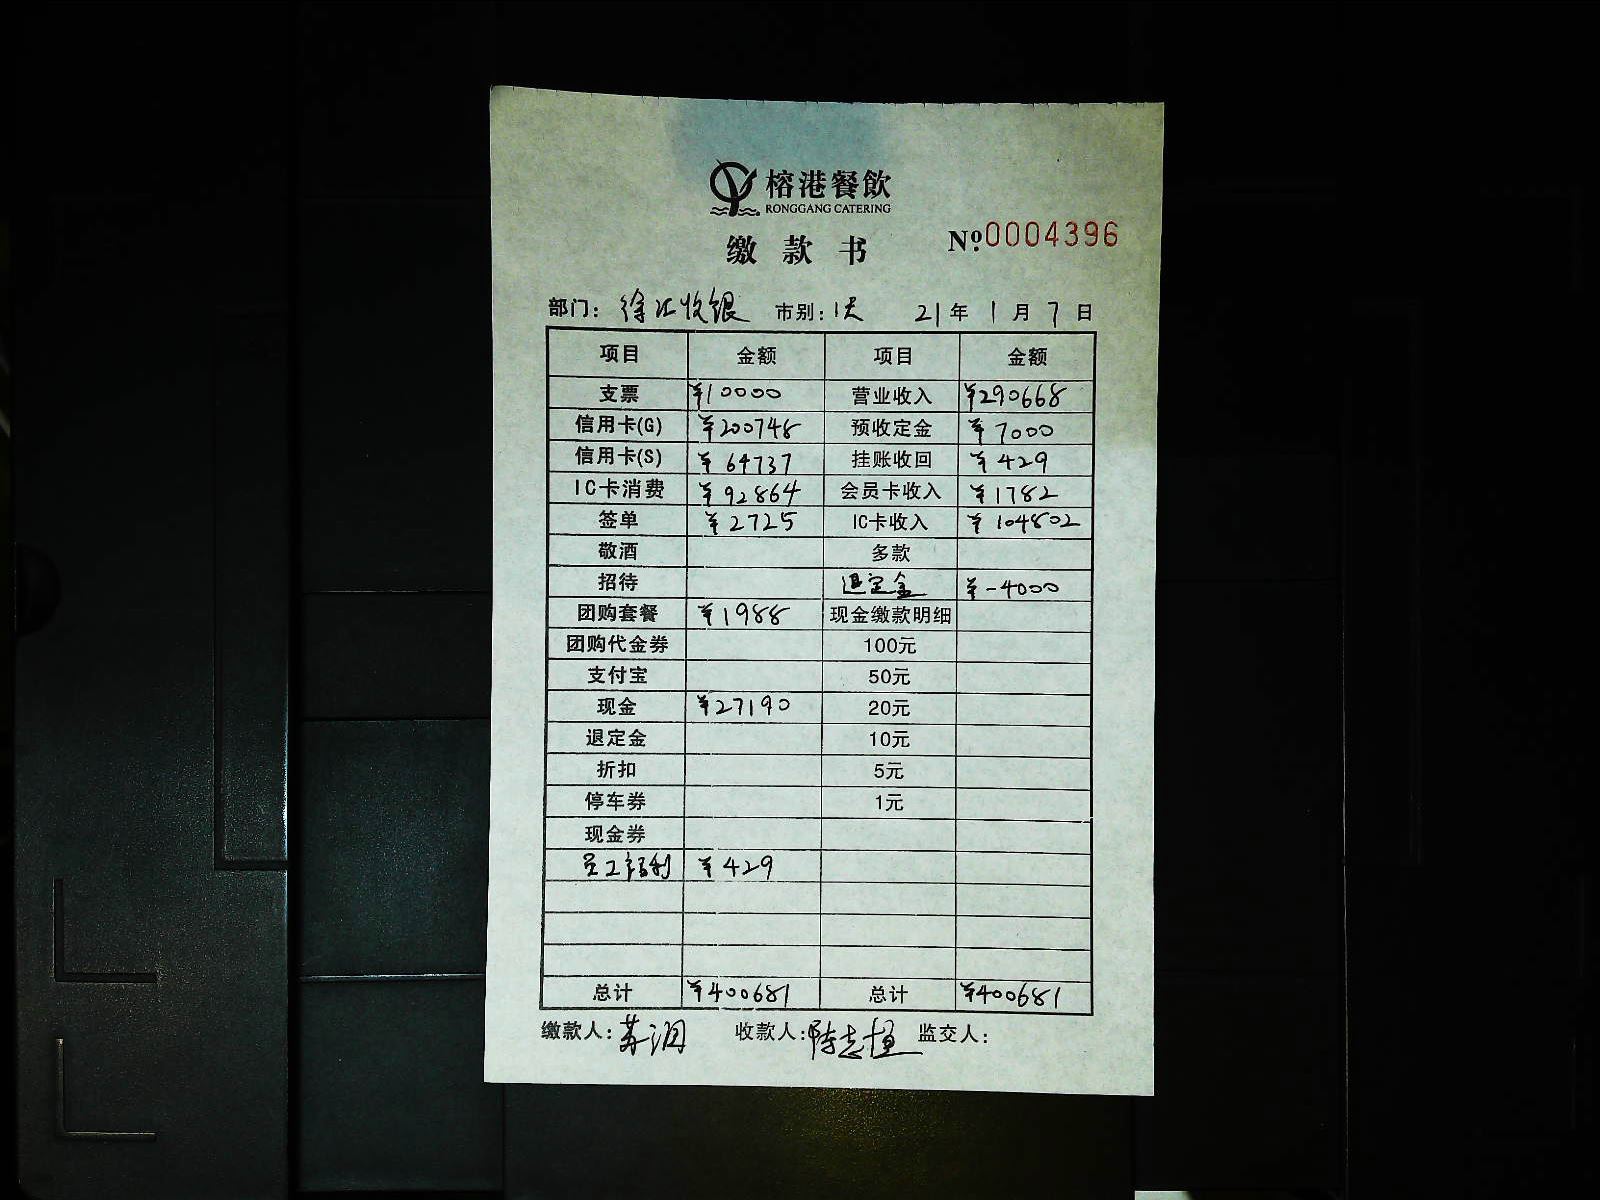 榕港餐飲
RONGGANG CATERING
缴款书 №0004396
部门: 徐汇收银 市别: 1天 21年1月7日
项目 金额 项目 金额
支票 ¥10000 营业收入 ¥290668
信用卡(G) ¥200748 预收定金 ¥7000
信用卡(S) ¥64737 挂账收回 ¥429
IC卡消费 ¥92864 会员卡收入 ¥1782
签单 ¥2725 IC卡收入 ¥104802
敬酒 多款
招待 退定金 ¥-4000
团购套餐 ¥1988 现金缴款明细
团购代金券 100元
支付宝 50元
现金 ¥27190 20元
退定金 10元
折扣 5元
停车券 1元
现金券
员工福利 ¥429
总计 ¥400681 总计 ¥400681
缴款人: 收款人: 监交人: